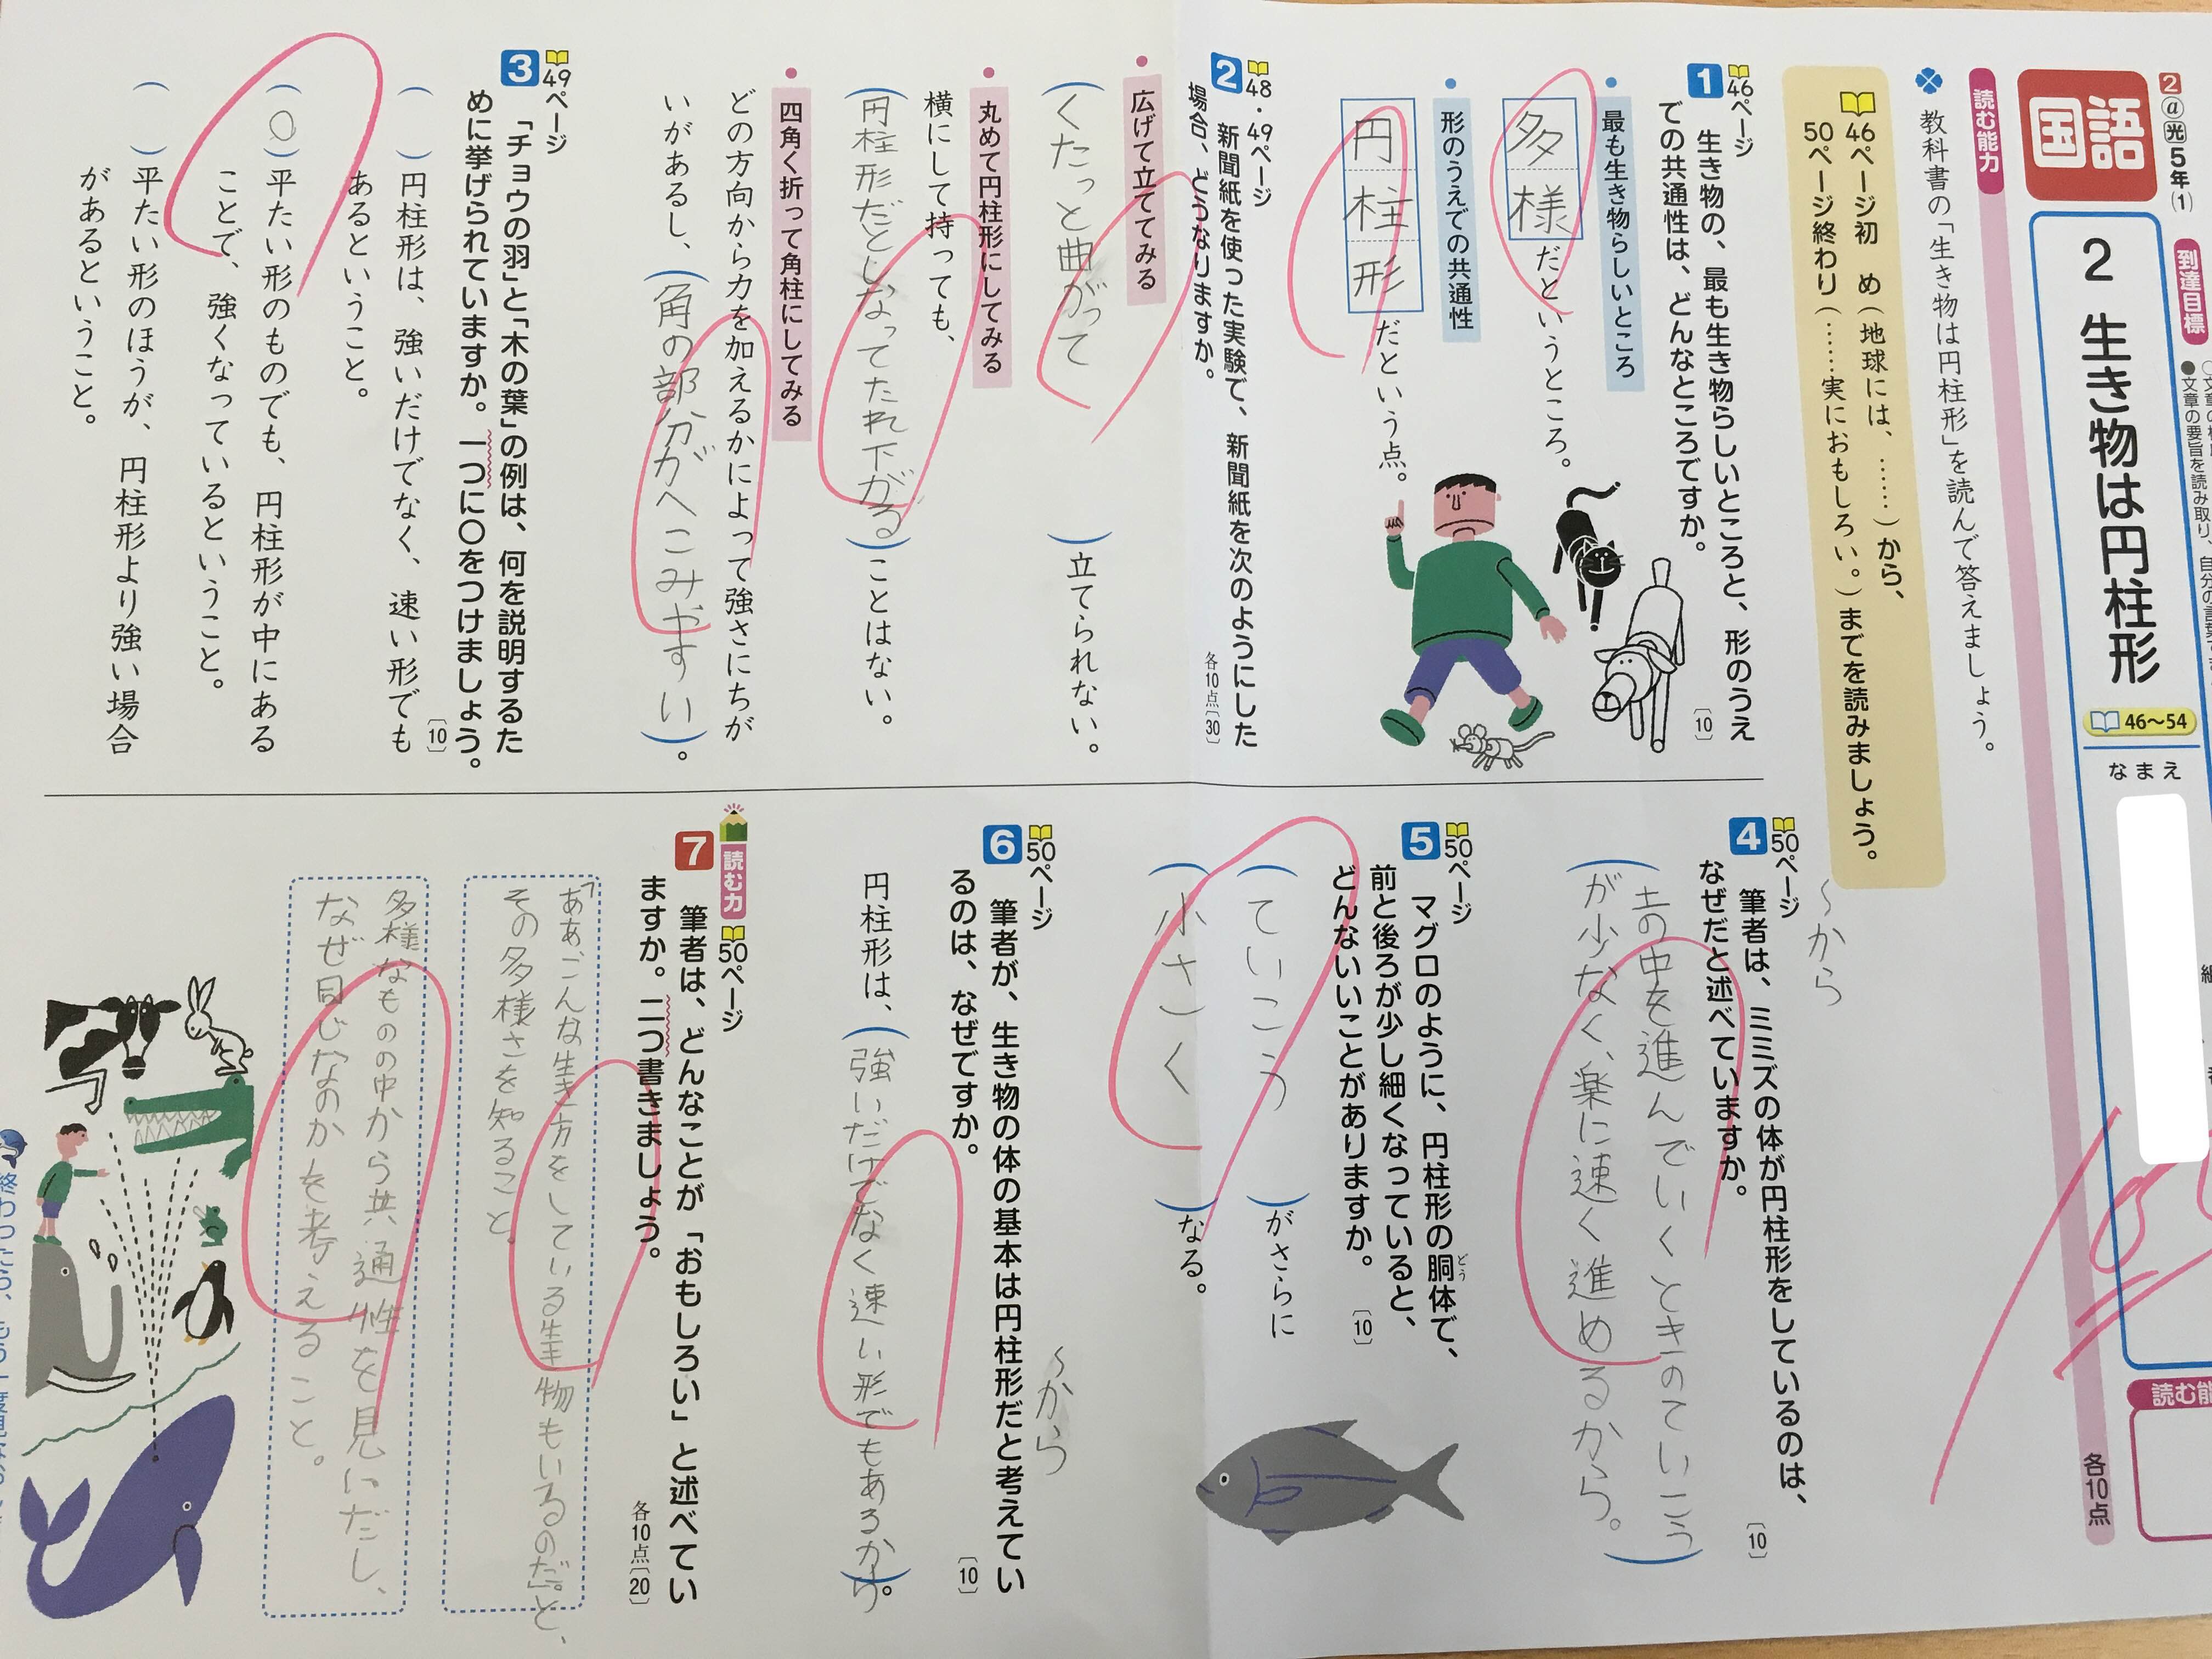 2 ⓐ 光 5年 (1)
国語
到達目標
2 生き物は円柱形
46~54
なまえ
読む能力
教科書の「生き物は円柱形」を読んで答えましょう。
各10点
46ページ初め(地球には、……)から、
50ページ終わり(……実におもしろい。)までを読みましょう。
46ページ
1 生き物の、最も生き物らしいところと、形のうえ
での共通性は、どんなところですか。
〔10〕
最も生き物らしいところ
多様だというところ。
形のうえでの共通性
円柱形だという点。
48・49ページ
2 新聞紙を使った実験で、新聞紙を次のようにした
場合、どうなりますか。
各10点〔30〕
広げて立ててみる
(くたっと曲がって)立てられない。
丸めて円柱形にしてみる
横にして持っても、
(円柱形だとしなってたれ下がる)ことはない。
四角く折って角柱にしてみる
どの方向から力を加えるかによって強さにちが
いがあるし、(角の部分がへこみやすい)。
49ページ
3 「チョウの羽」と「木の葉」の例は、何を説明するた
めに挙げられていますか。一つに〇をつけましょう。
〔10〕
( )円柱形は、強いだけでなく、速い形でも
あるということ。
(○)平たい形のものでも、円柱形が中にある
ことで、強くなっているということ。
( )平たい形のほうが、円柱形より強い場合
があるということ。
~から
50ページ
4 筆者は、ミミズの体が円柱形をしているのは、
なぜだと述べていますか。
〔10〕
(土の中を進んでいくときのていこう
が少なく、楽に速く進めるから。)
50ページ
5 マグロのように、円柱形の胴体で、
どう
前と後ろが少し細くなっていると、
どんないいことがありますか。
〔10〕
(ていこう)がさらに
(小さく)なる。
50ページ
6 筆者が、生き物の体の基本は円柱形だと考えてい
るのは、なぜですか。
〔10〕
~から
円柱形は、(強いだけでなく速い形でもあるから)。
読む力 50ページ
7 筆者は、どんなことが「おもしろい」と述べてい
ますか。二つ書きましょう。
各10点〔20〕
「ああ、こんな生き方をしている生き物もいるのだ。」と、
その多様さを知ること。
多様なものの中から共通性を見いだし、
なぜ同じなのかを考えること。